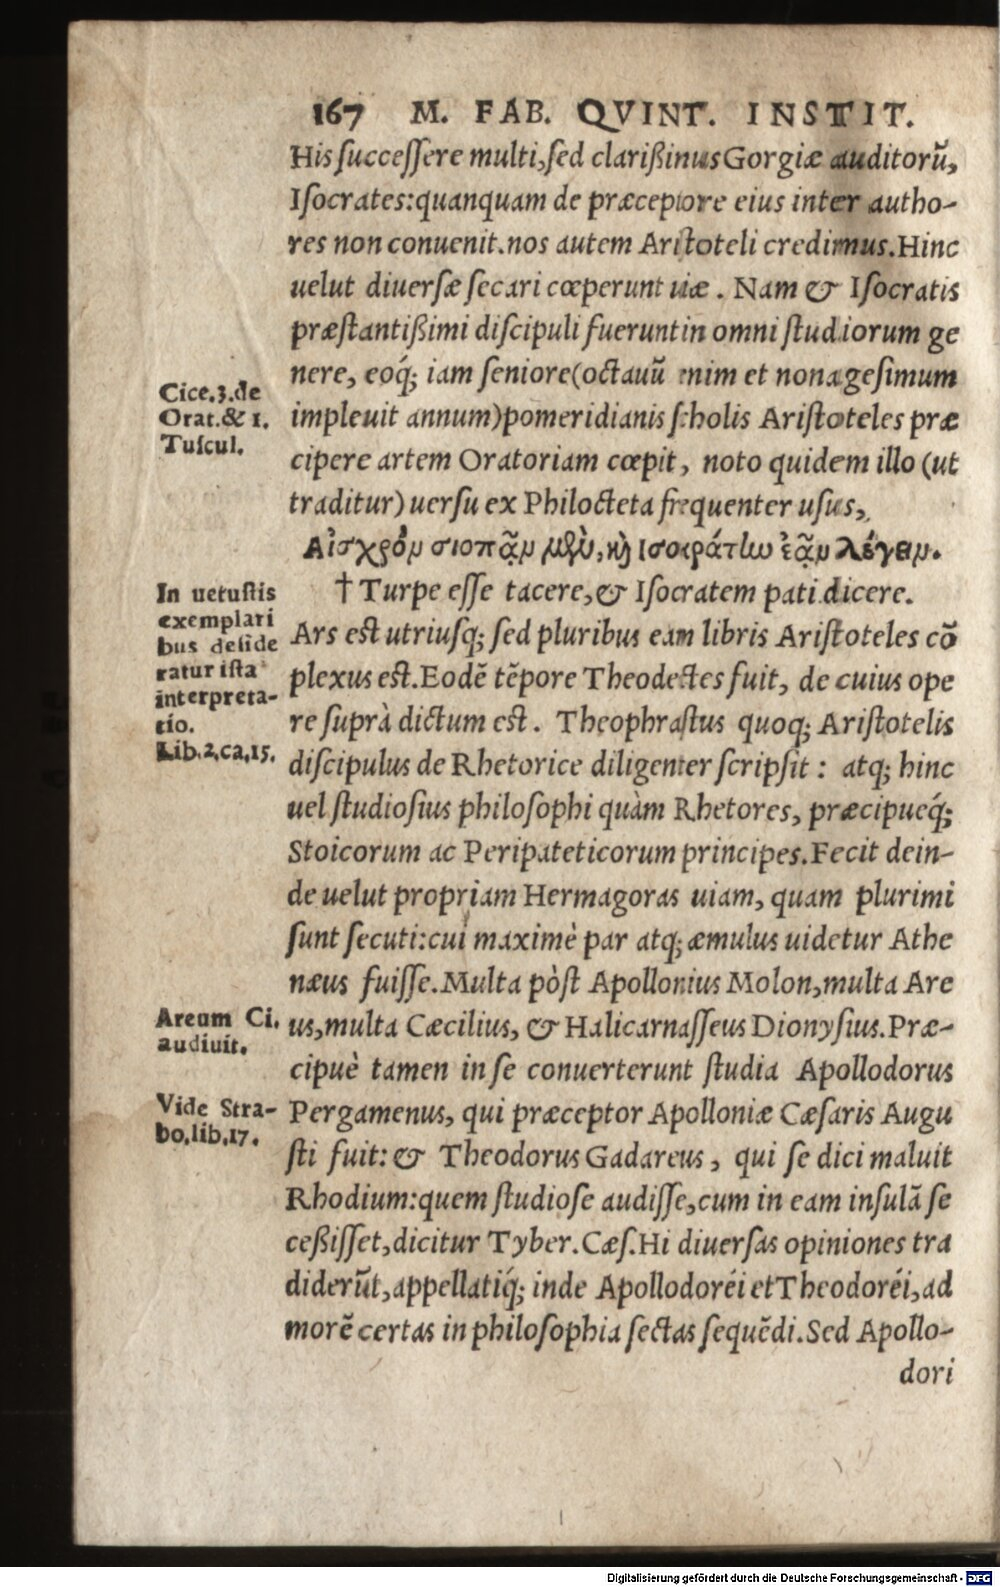 167 M. FAB. QVINT. INSTIT.
His successere multi, sed clarißimus Gorgiæ auditorũ,
Isocrates: quanquam de præceptore eius inter autho-
res non conuenit. nos autem Aristoteli credimus. Hinc
uelut diuersæ secari cœperunt uiæ. Nam & Isocratis
præstantißimi discipuli fuerunt in omni studiorum ge
nere, eoq́; iam seniore (octauũ enim et nonagesimum
impleuit annum) pomeridianis scholis Aristoteles præ
cipere artem Oratoriam cœpit, noto quidem illo (ut
traditur) uersu ex Philocteta frequenter usus,
Αἰσχρὸν σιοπᾷν μὲν, κὴ ισοκράτην ἐᾷν λέγειν.
† Turpe esse tacere, & Isocratem pati dicere.
Ars est utriusq; sed pluribus eam libris Aristoteles cõ
plexus est. Eodẽ tẽpore Theodectes fuit, de cuius ope
re suprà dictum est. Theophrastus quoq; Aristotelis
discipulus de Rhetorice diligenter scripsit: atq; hinc
uel studiosius philosophi quàm Rhetores, præcipueq́;
Stoicorum ac Peripateticorum principes. Fecit dein-
de uelut propriam Hermagoras uiam, quam plurimi
sunt secuti: cui maximè par atq; æmulus uidetur Athe
næus fuisse. Multa pòst Apollonius Molon, multa Are
us, multa Cæcilius, & Halicarnasseus Dionysius. Præ-
cipuè tamen in se conuerterunt studia Apollodorus
Pergamenus, qui præceptor Apolloniæ Cæsaris Augu
sti fuit: & Theodorus Gadareus, qui se dici maluit
Rhodium: quem studiose audisse, cum in eam insulã se
ceßisset, dicitur Tyber. Cæs. Hi diuersas opiniones tra
diderũt, appellatiq́; inde Apollodoréi et Theodoréi, ad
morẽ certas in philosophia sectas sequẽdi. Sed Apollo-
dori
Cice.3.de
Orat.& 1.
Tuscul.
In uetustis
exemplari
bus deside
ratur ista
interpreta-
tio.
Lib.2,ca,15.
Areum Ci.
audiuit.
Vide Stra-
bo,lib,17.
Digitalisierung gefördert durch die Deutsche Forschungsgemeinschaft - DFG